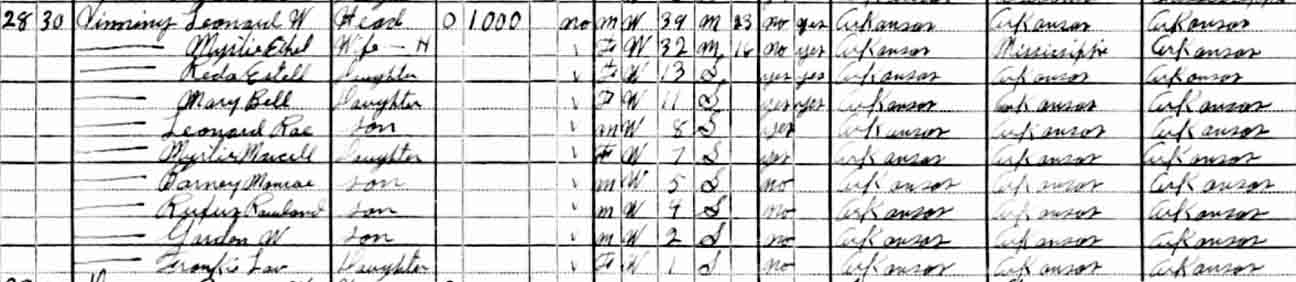 28 30 Leonard W Head O 1000 no M W 39 M 23 no yes Arkansas Arkansas Arkansas
Myrtie Ethel Wife - H F W 32 M 16 no yes Arkansas Mississippi Arkansas
Reda Estell Daughter F W 13 S yes yes Arkansas Arkansas Arkansas
Mary Bell Daughter F W 11 S yes yes Arkansas Arkansas Arkansas
Leonard Rae Son M W 8 S yes Arkansas Arkansas Arkansas
Myrtie Marcell Daughter F W 7 S yes Arkansas Arkansas Arkansas
Barney Monroe Son M W 5 S no Arkansas Arkansas Arkansas
Rufus Rawland Son M W 4 S no Arkansas Arkansas Arkansas
Gordon W Son M W 2 S no Arkansas Arkansas Arkansas
Daughter F W 1 S no Arkansas Arkansas Arkansas